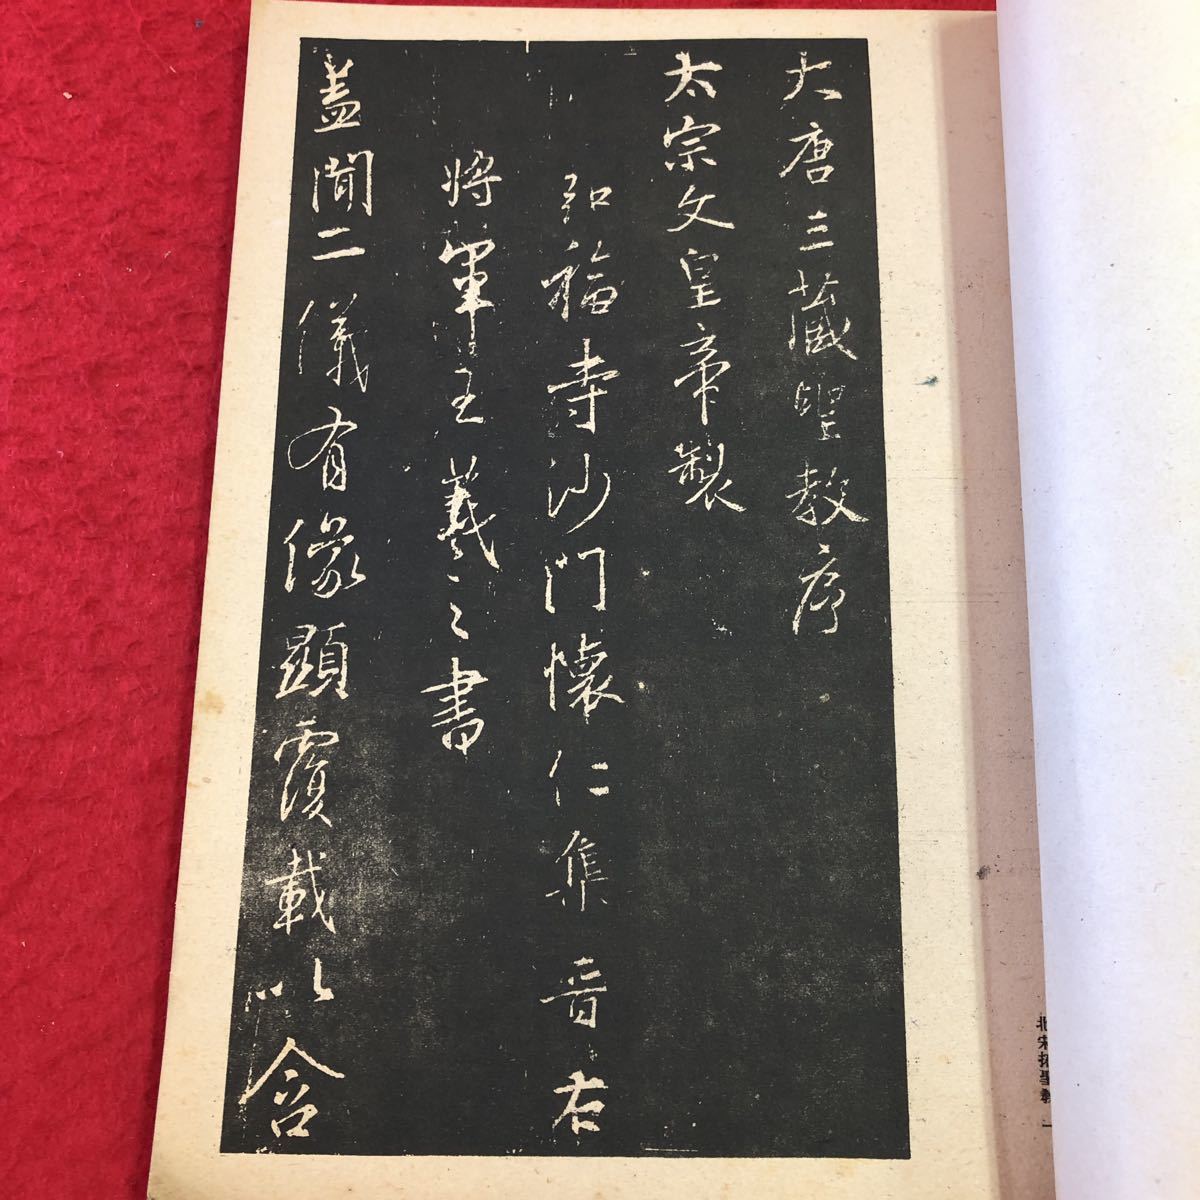 大唐三藏聖教序
太宗文皇帝製
弘福寺沙門懷仁集晉右
將軍王羲之書
蓋聞二儀有像顯覆載以含
北宋拓聖教 一